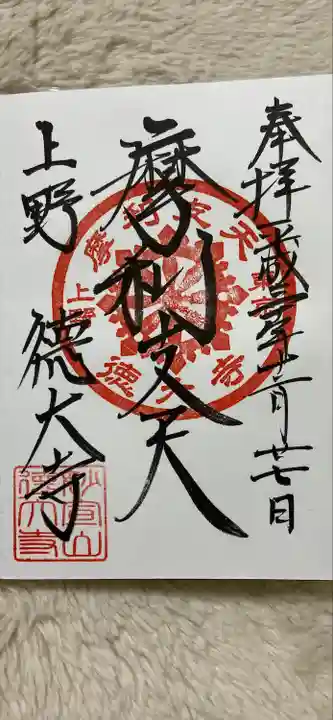 奉拝 月廿七日
摩利支天
上野 徳大寺
摩利支天
上野
徳大寺
妙宣山
徳大寺